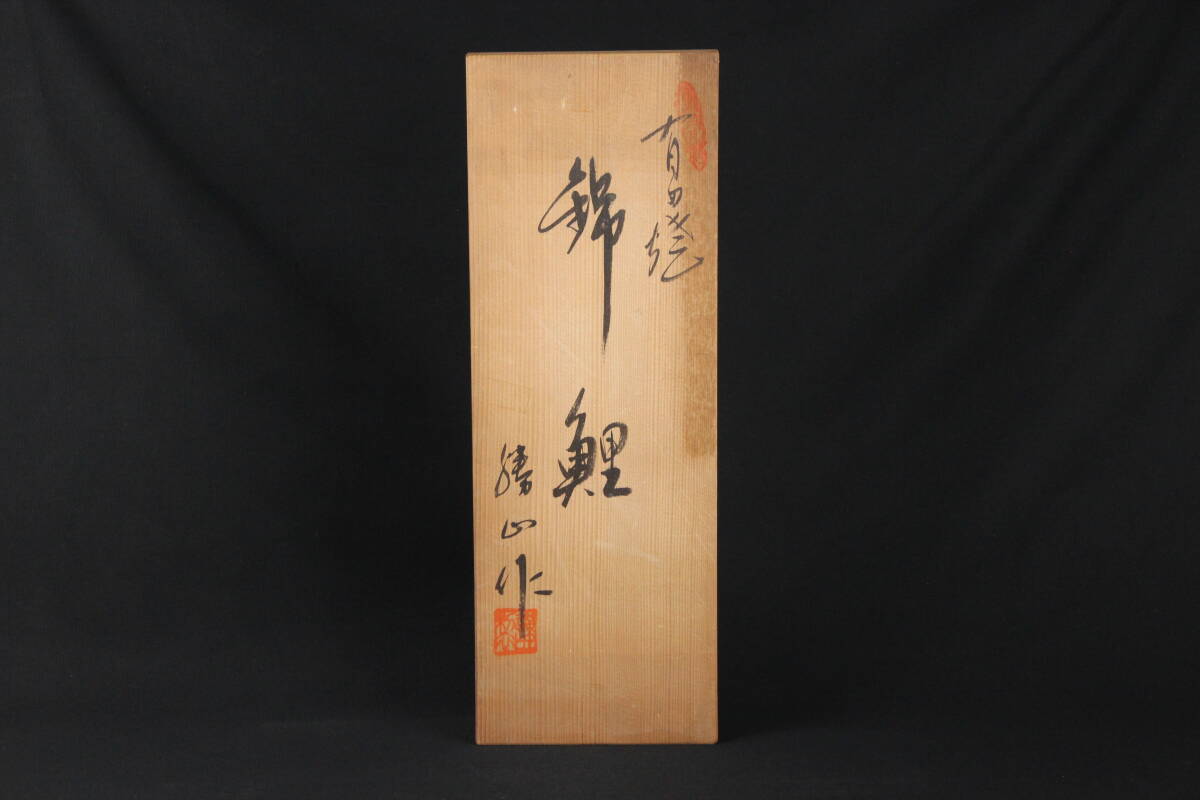 有田焼
錦鯉
勝山作